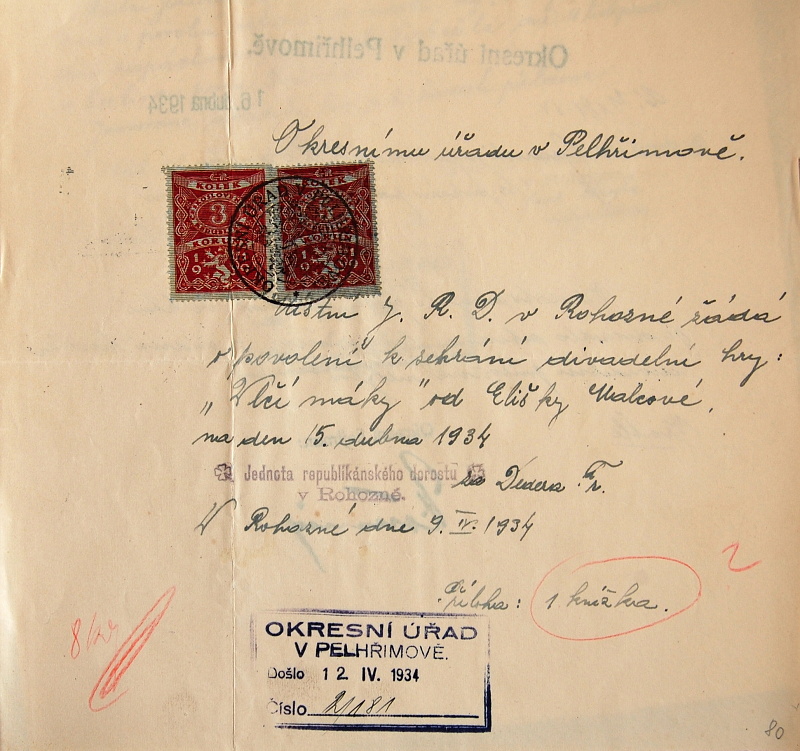 Okresní úřad v Pelhřimově.
16. dubna 1934
Okresnímu úřadu v Pelhřimově.
KOLEK
3
KORUN
19
KOLEK
KORUN
19
Místní J. R. D. v Rohozné žádá
o povolení k sehrání divadelní hry:
„Vlčí máky" od Elišky Malcové,
na den 15. dubna 1934
Jednota republikánského dorostu
v Rohozné.
za Dedera Fr.
V Rohozné dne 9. IV. 1934
Příloha: 1 knížka.
OKRESNÍ ÚŘAD
V PELHŘIMOVĚ.
Došlo 12. IV. 1934
Číslo
80